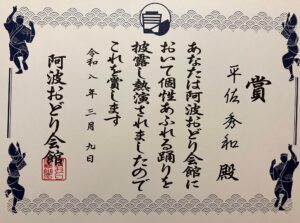 賞
平佐秀和 殿
あなたは阿波おどり会館に
おいて個性あふれる踊りを
披露し熱演されましたので
これを賞します
令和八年三月九日
阿波おどり会館